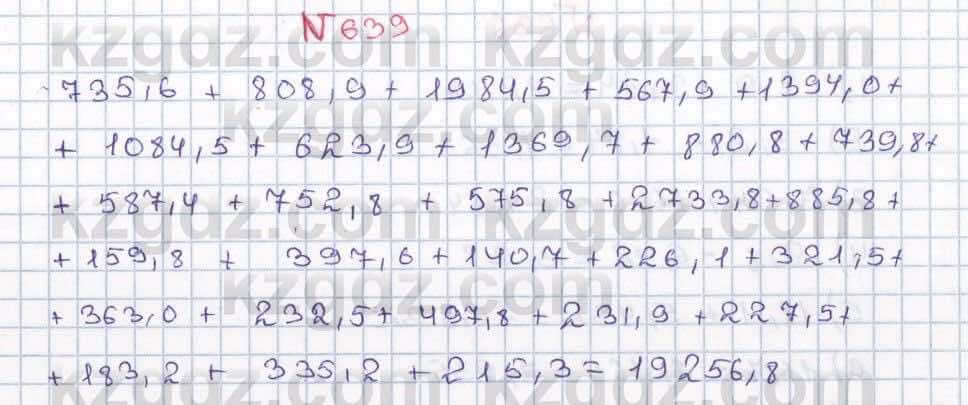 N 639
735,6 + 808,9 + 1984,5 + 567,9 + 1394,0 +
+ 1084,5 + 623,9 + 1369,7 + 880,8 + 739,8 +
+ 587,4 + 752,8 + 575,8 + 2733,8 + 885,8 +
+ 159,8 + 397,6 + 140,7 + 226,1 + 321,5 +
+ 363,0 + 232,5 + 497,8 + 231,9 + 227,5 +
+ 183,2 + 335,2 + 215,3 = 19256,8
kzgdz.com